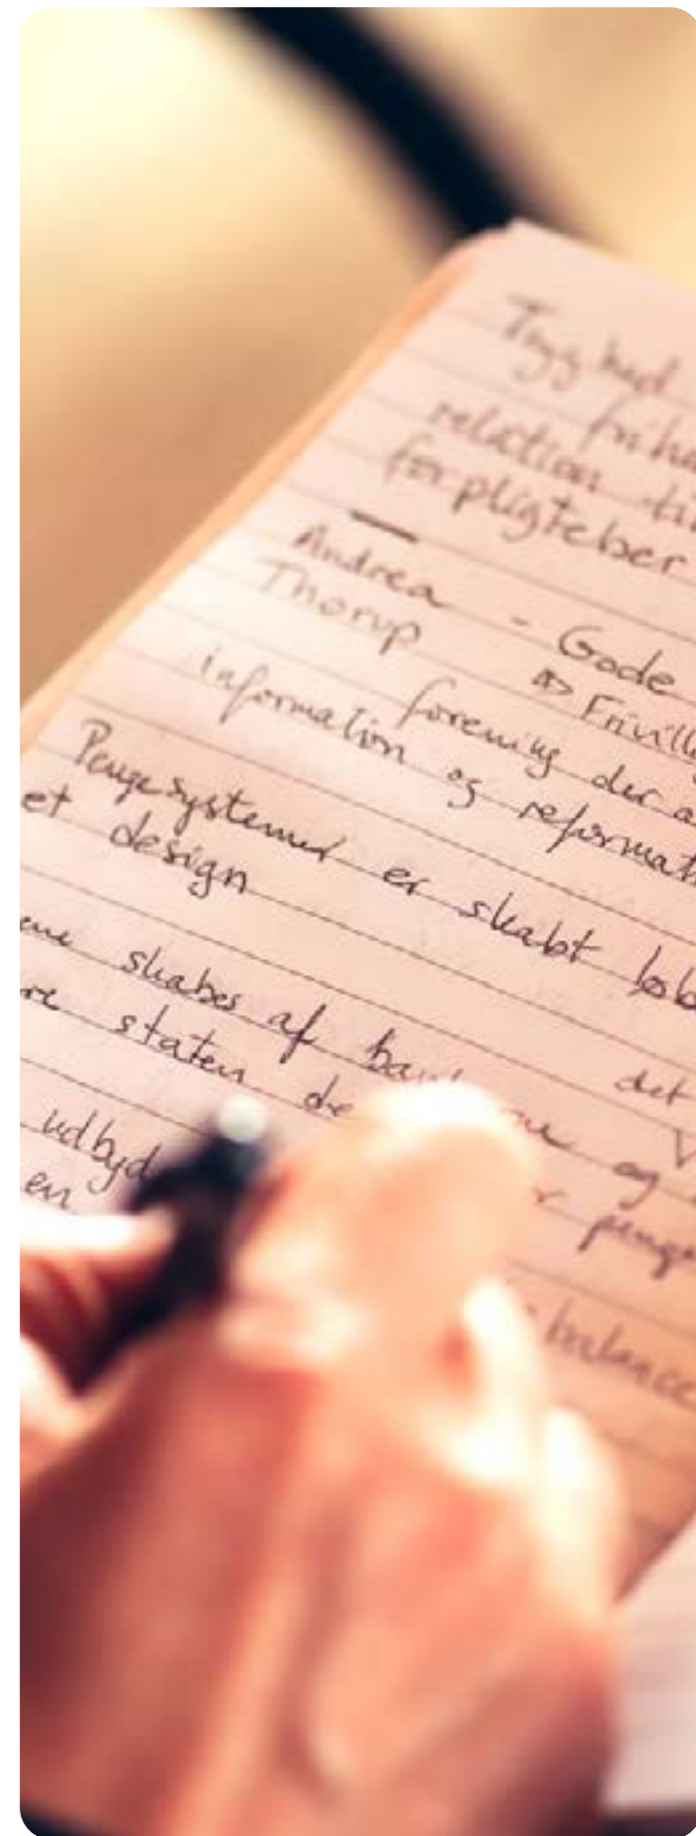 Tryghed
frihe
relation til
forpligtelser
Andrea - Gode
Thorup => Frivill
forening der a
information og reformat
Pengesystemer er skabt
et design
ene skabes af ban ne og det
re staten de r penge
udbyd
en
balance